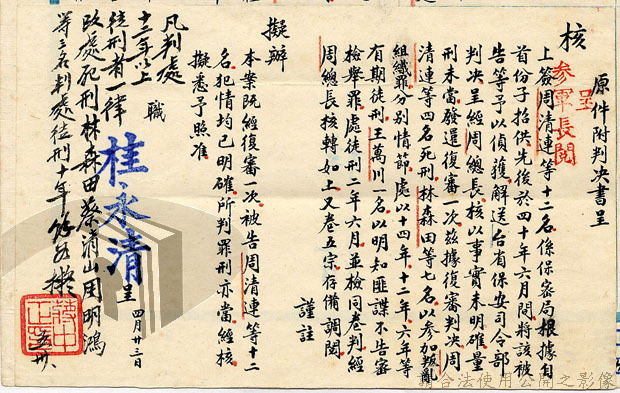 原件附判決書呈
核
呈
參軍長閱
上簽周清連等十二名係保密局根據自
首份子招供先後於四十年六月間將該被
告等予以偵獲解送台省保安司令部
判決呈經周總長核以事實未明確量
刑未當發還復審一次茲據復審判決周
清連等四名死刑林森田等七名以參加叛亂
組織罪分別情節處以十四年十二年六年等
有期徒刑王萬川一名以明知匪諜不告密
檢舉罪處徒刑二年六月並檢同卷判經
周總長核轉如上又卷五宗存備調閱
謹註
擬辦
本案既經復審一次被告周清連等十二
名犯情均已明確所判罪刑亦當經核
擬悉予照准
職
桂永清
呈
四月廿三日
凡判處
十二年以上
徒刑者一律
改處死刑林森田蔡清山周明鴻
等三名判處徒刑十年餘如擬
蔣中正印
五卅
請合法使用公開之影像